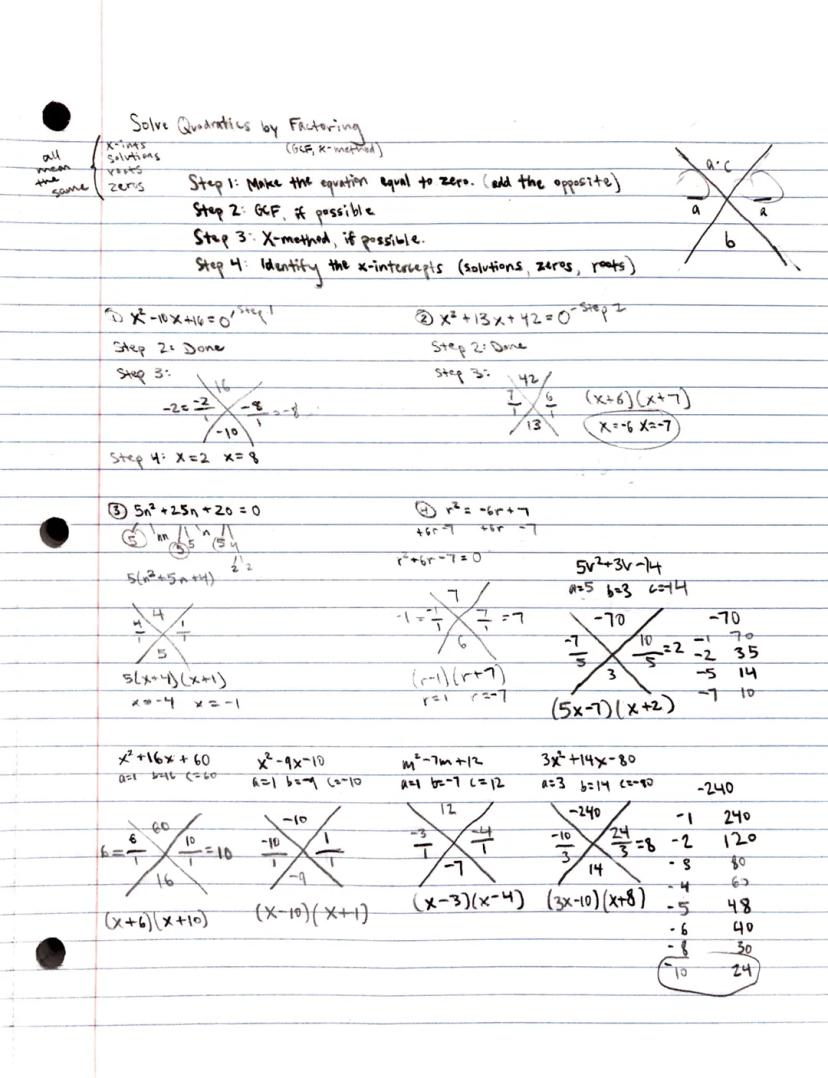 Solve Quadratics by Factoring
(GCF, X-method)
all mean the same
x-ints
solutions
roots
zeros
Step 1: Make the equation equal to zero. (add the opposite)
Step 2: GCF, if possible
Step 3: X-method, if possible.
Step 4: Identify the x-intercepts (solutions, zeros, roots)
a·c
a a
b
① x² -10x+16=0 Step 1
Step 2: Done
Step 3:
16
-2= -2/1 -8/1 = -8
-10
Step 4: x=2 x=8
② x² +13x+42=0 - Step 2
Step 2: Done
Step 3:
42
7/1 6/1
13
(x+6)(x+7)
x=-6 x=-7
③ 5n² +25n +20 = 0
5 nn 5 5 n 5 4
2 2
5(n²+5n+4)
4
4/1 1/1
5
5(x+4)(x+1)
x=-4 x=-1
④ r² = -6r+7
+6r-7 +6r -7
r²+6r-7=0
7
-1 = -1/1 7/1 = 7
6
(r-1)(r+7)
r=1 r=-7
5v²+3v-14
a=5 b=3 c=-14
-70
-7/5 10/5 =2
3
(5x-7)(x+2)
-70
-1 70
-2 35
-5 14
-7 10
x²+16x+60
a=1 b=16 c=60
60
6= 6/1 10/1 =10
16
(x+6)(x+10)
x²-9x-10
a=1 b=-9 c=-10
-10
-10/1 1/1
-9
(x-10)(x+1)
m²-7m+12
a=1 b=-7 c=12
12
-3/1 -4/1
-7
(x-3)(x-4)
3x²+14x-80
a=3 b=14 c=-80
-240
-10/3 24/3 =8
14
(3x-10)(x+8)
-240
-1 240
-2 120
-3 80
-4 60
-5 48
-6 40
-8 30
-10 24